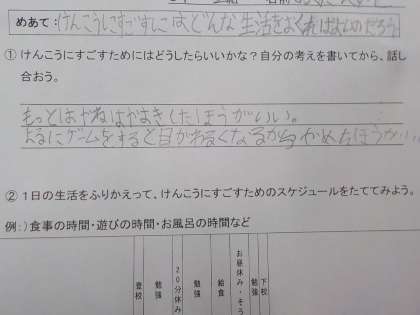 めあて：けんこうにすごすにはどんな生活をよくればよいのだろう
① けんこうにすごすためにはどうしたらいいかな？自分の考えを書いてから、話し
合おう。
もっとはやねはやおきしたほうがいい。
よるにゲームをすると目がわるくなるからやめたほうがいい。
② １日の生活をふりかえって、けんこうにすごすためのスケジュールをたててみよう。
例：）食事の時間・遊びの時間・お風呂の時間など
登校
勉強
２０分休み
勉強
給食
お昼休み・そう
勉強
下校